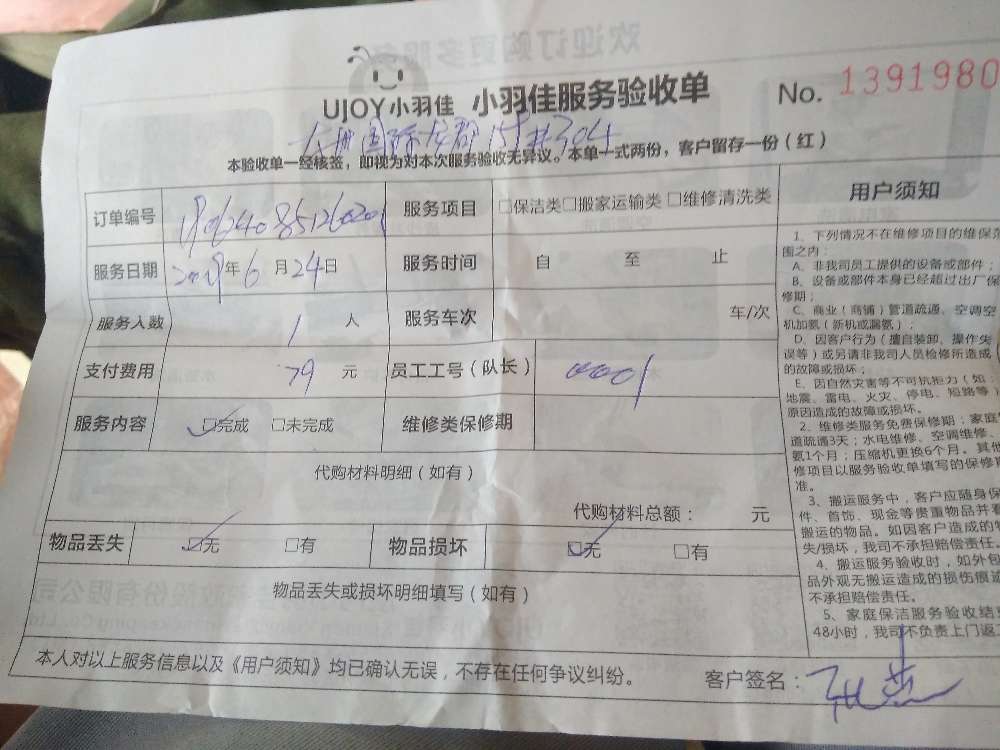 欢迎订购更多服务
UJOY小羽佳 小羽佳服务验收单 No. 1391980
国际 15 304
本验收单一经核签，即视为对本次服务验收无异议。本单一式两份，客户留存一份（红）
订单编号 服务项目 □保洁类□搬家运输类 □维修清洗类
服务日期 2019年6月24日 服务时间 自 至 止
服务人数 1 人 服务车次 车/次
支付费用 79 元 员工工号（队长） 0001
服务内容 □完成 □未完成 维修类保修期
代购材料明细（如有）
代购材料总额： 元
物品丢失 □无 □有 物品损坏 □无 □有
物品丢失或损坏明细填写（如有）
本人对以上服务信息以及《用户须知》均已确认无误，不存在任何争议纠纷。
客户签名：
用户须知
1、下列情况不在维修项目的维保范
围之内：
A、非我司员工提供的设备或部件；
B、设备或部件本身已经超过出厂保
修期；
C、商业（商铺）管道疏通、空调空
机加氨（新机或漏氨）；
D、因客户行为（擅自装卸、操作失
误等）或另请非我司人员检修所造成
的故障或损坏；
E、因自然灾害等不可抗拒力（如：
地震、雷电、火灾、停电、短路等
原因造成的故障或损坏。
2、维修类服务免费保修期：家庭
道疏通3天；水电维修、空调维修、
氨1个月；压缩机更换6个月。其他
修项目以服务验收单填写的保修期
准。
3、搬运服务中，客户应随身保
件、首饰、现金等贵重物品并看
搬运的物品。如因客户造成的
失/损坏，我司不承担赔偿责任。
4、搬运服务验收时，如外包
品外观无搬运造成的损伤痕迹
不承担赔偿责任。
5、家庭保洁服务验收结
48小时，我司不负责上门返工